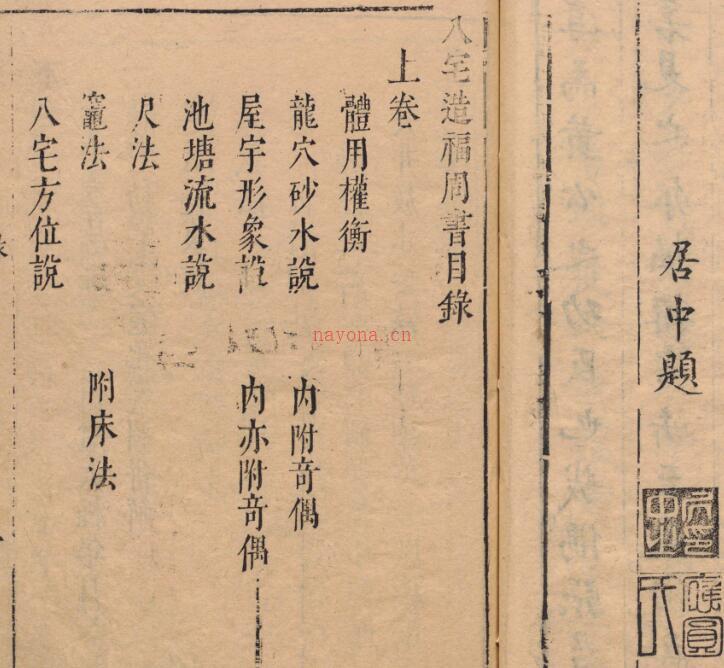 居中題
八宅造福周書目錄
上卷
體用權衡
龍穴砂水說 內附奇偶
屋宇形象說 內亦附奇偶
池塘流水說
尺法
竈法 附床法
八宅方位說
nayona.cn